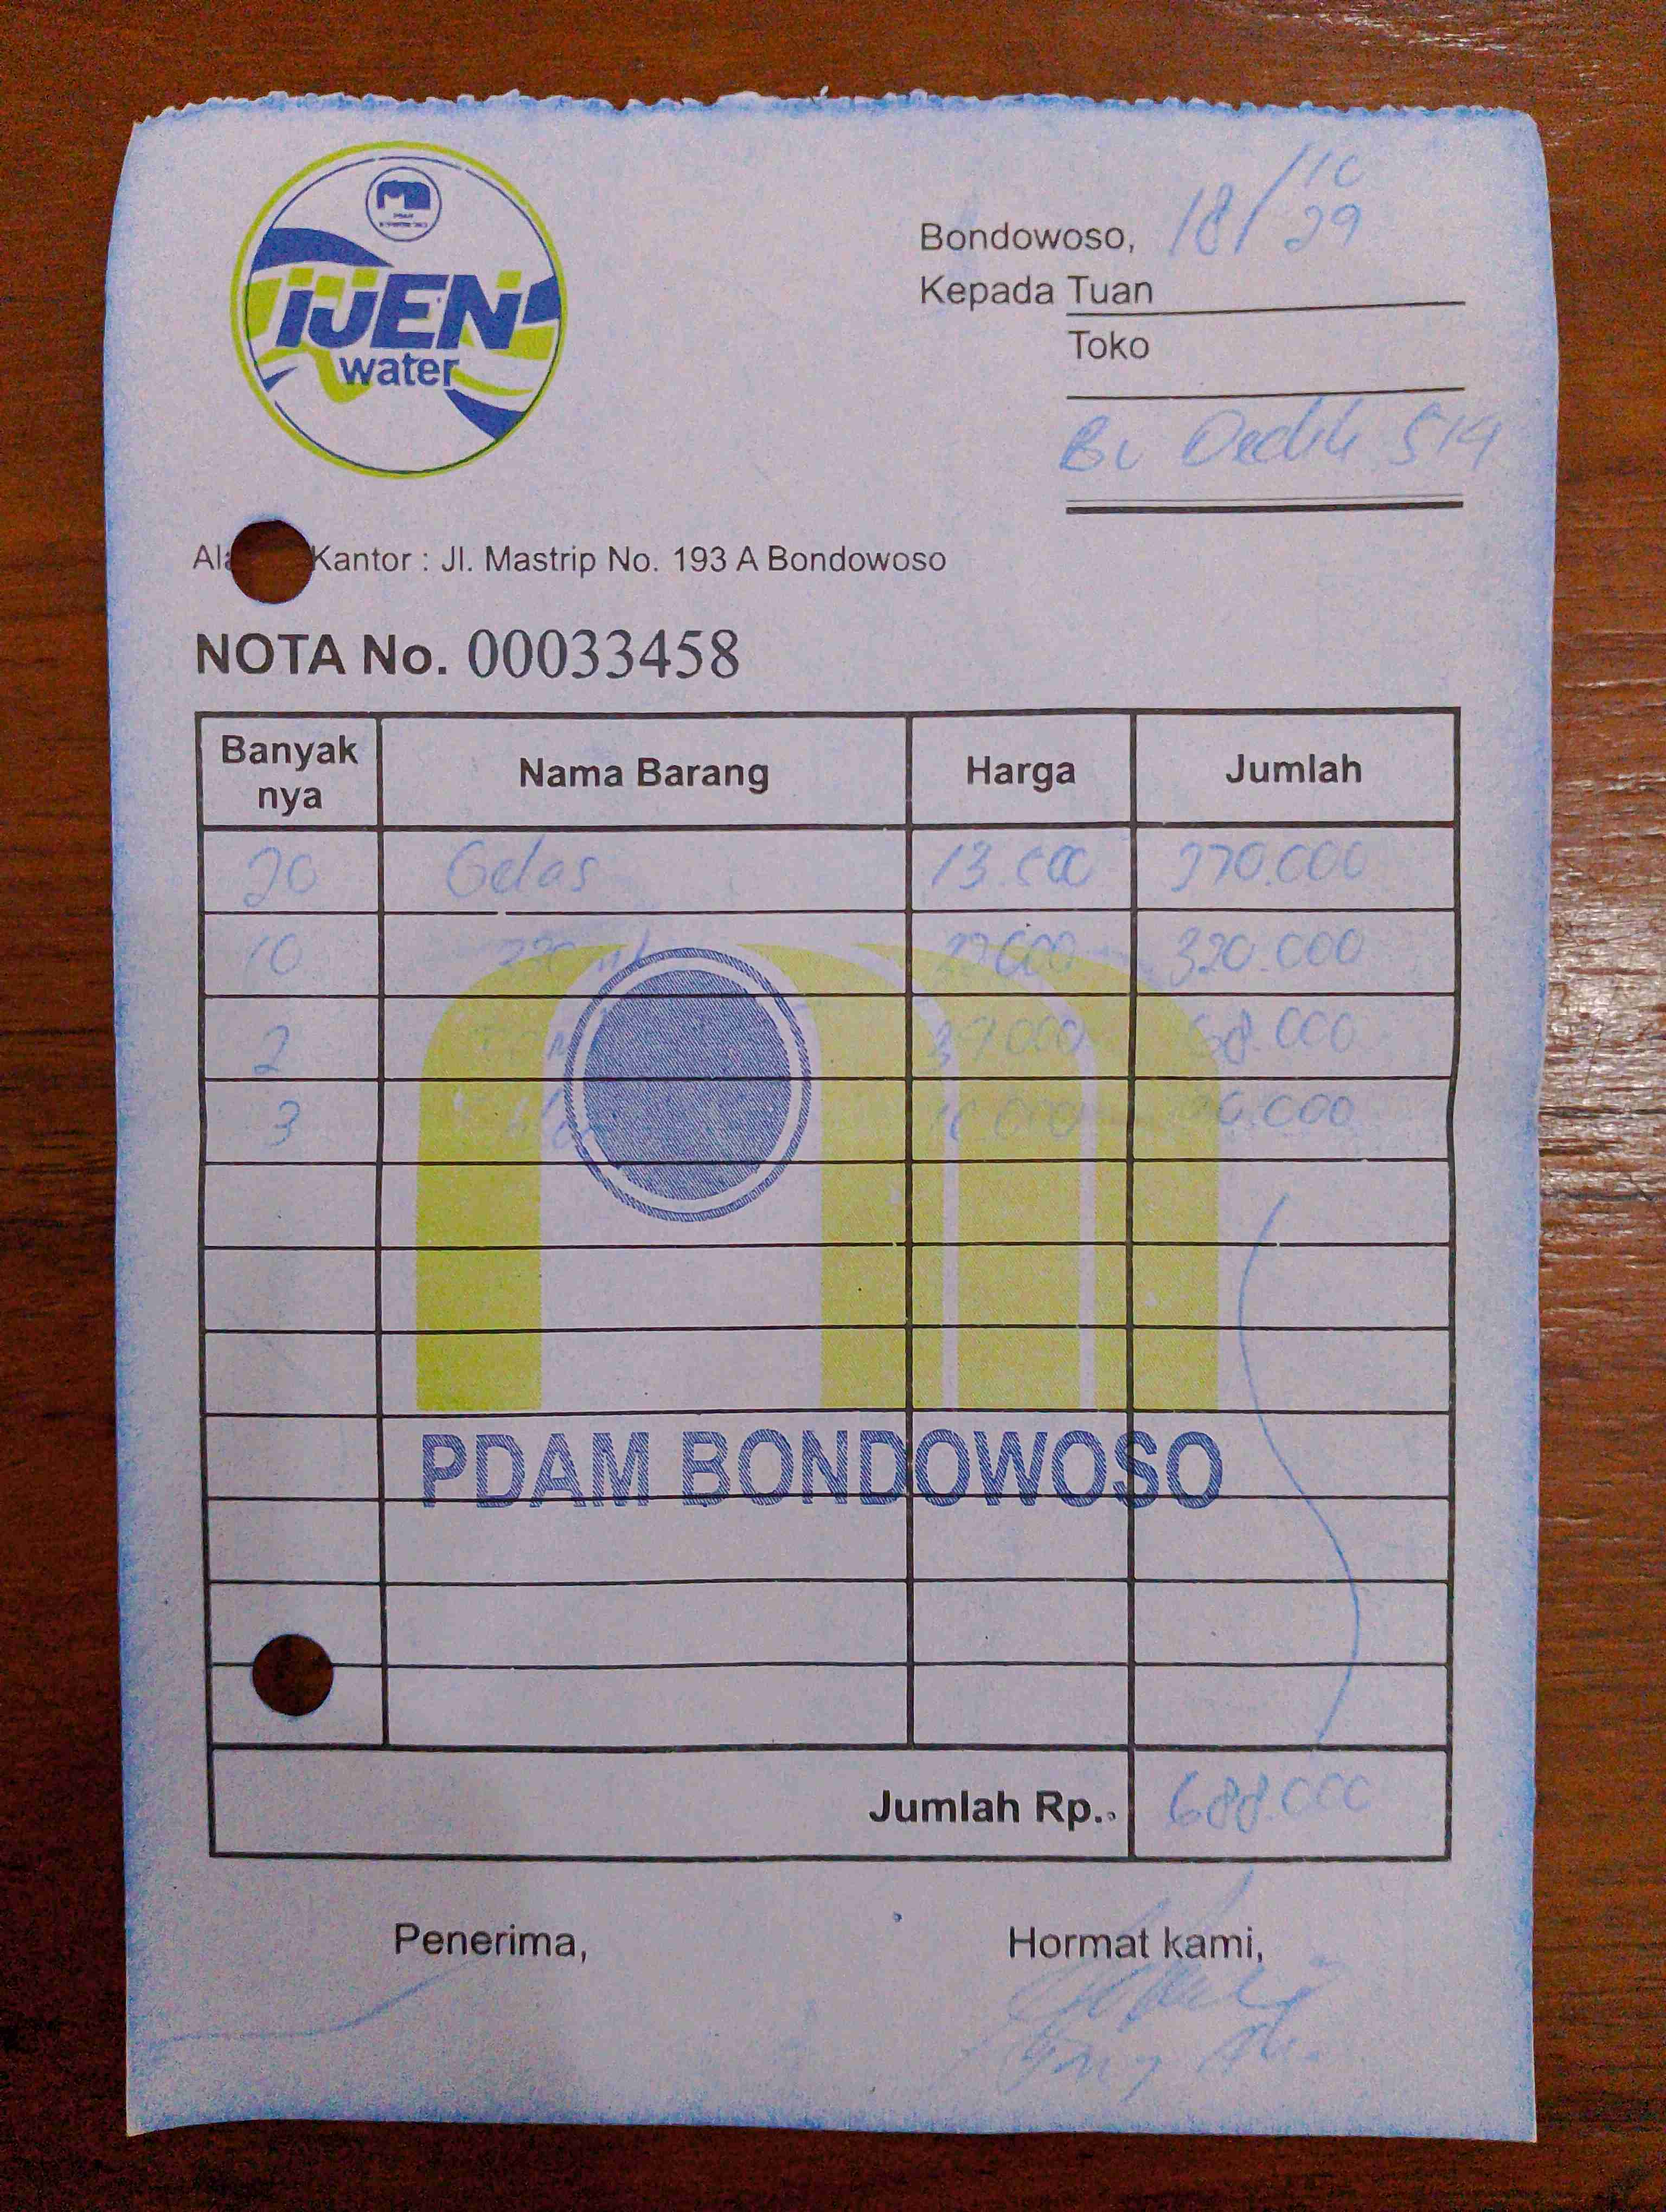 IJEN
water
Bondowoso, 18/10 29
Kepada Tuan
Toko
Bu Dedik 514
Kantor : Jl. Mastrip No. 193 A Bondowoso
NOTA No. 00033458
Banyak nya Nama Barang Harga Jumlah
20 Gelas 13.500 270.000
10 320.000
2 68.000
3 000
PDAM BONDOWOSO
Jumlah Rp. 688.000
Penerima, Hormat kami,